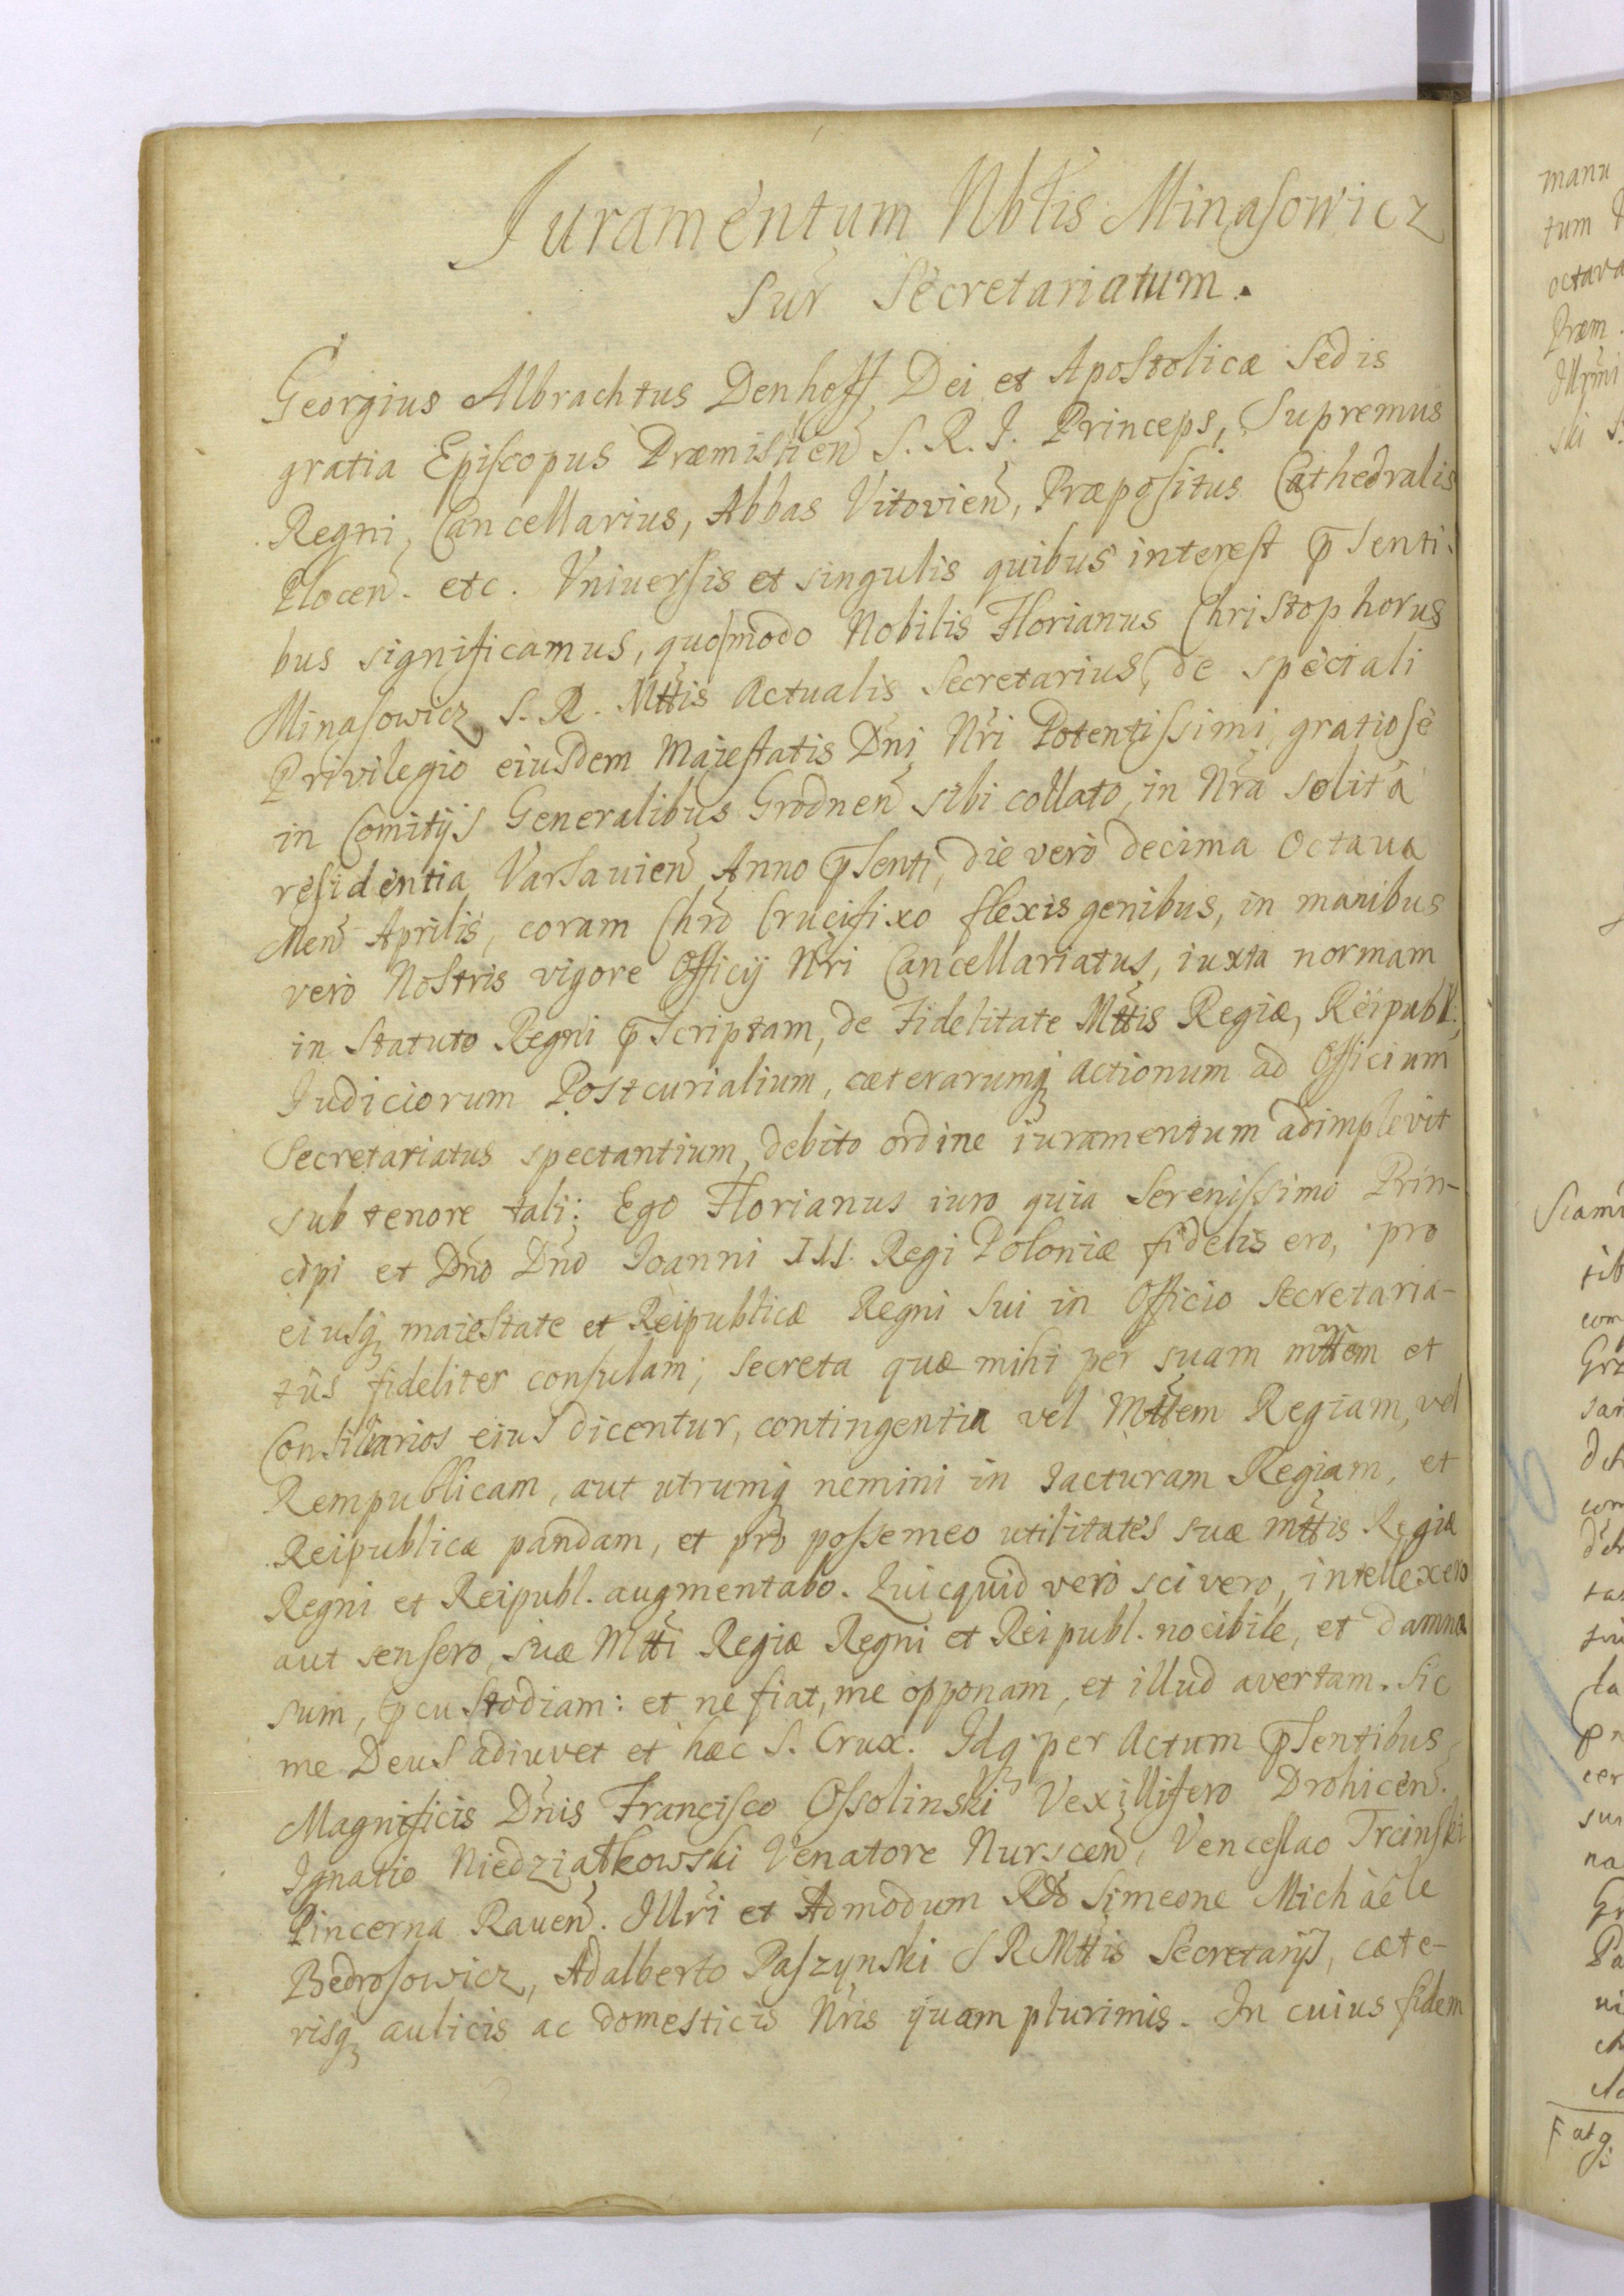 Juramentum Nbtis Minasowicz
Sur Secretariatum.
Georgius Albrachtus Denhoff Dei et Apostolicæ Sedis
gratia Episcopus Præmislien S. R. I. Princeps, Supremus
Regni, Cancellarius, Abbas Vitovien, Præpositus Cathedralis
Plocen. etc. Vniuersis et singulis quibus interest p̄senti-
bus significamus, quomodo Nobilis Florianus Christophorus
Minasowicz S. R. Mttis Actualis Secretarius, de speciali
Privilegio eiusdem Maiestatis Dni Nri Potentissimi gratiose
in Comitijs Generalibus Grodnen sibi collato, in Nra solitâ
residentia Varsauien Anno p̄senti, die vero decima Octaua
Men Aprilis, coram Chro Crucifixo flexis genibus, in manibus
vero Nostris vigore Officij Nri Cancellariatus, iuxta normam
in Statuto Regni p̄scriptam, de Fidelitate Mttis Regiæ, Reipubl:
Judiciorum Postcurialium, cæterarumq actionum ad Officium
Secretariatus spectantium, debito ordine iuramentum adimplevit
sub tenore tali: Ego Florianus iuro quia Serenissimo Prin-
cipi et Dno Dno Joanni III. Regi Poloniæ fidelis ero, pro
eiusq maiestate et Reipublicæ Regni Sui in Officio secretaria-
tûs fideliter consulam; secreta quæ mihi per suam mttem et
Consiliarios eius dicentur, contingentia vel Mttem Regiam, vel
Rempublicam, aut utrumq nemini in Jacturam Regiam, et
Reipublicæ pandam, et pro posse meo utilitates suæ mttis Regiæ
Regni et Reipubl. augmentabo. Quicquid vero scivero, intellexero
aut sensero, suæ Mtti Regiæ Regni et Reipubl. nocibile, et damno
sum, p̄custodiam: et ne fiat, me opponam, et illud avertam. Sic
me Deus adiuvet et hæc S. Crux. Idq per Actum p̄sentibus
Magnificis Dnis Francisco Ossolinski Vexillifero Drohicen.
Ignatio Niedziałkowski Venatore Nurscen, Venceslao Trcinski
Pincerna Rauen. Illri et Admodum Rdo Simeone Michàële
Bedrosowicz, Adalberto Paszynski S R Mttis Secretarijs, cæte-
risq aulicis ac domesticis Nris quam plurimis. In cuius fidem